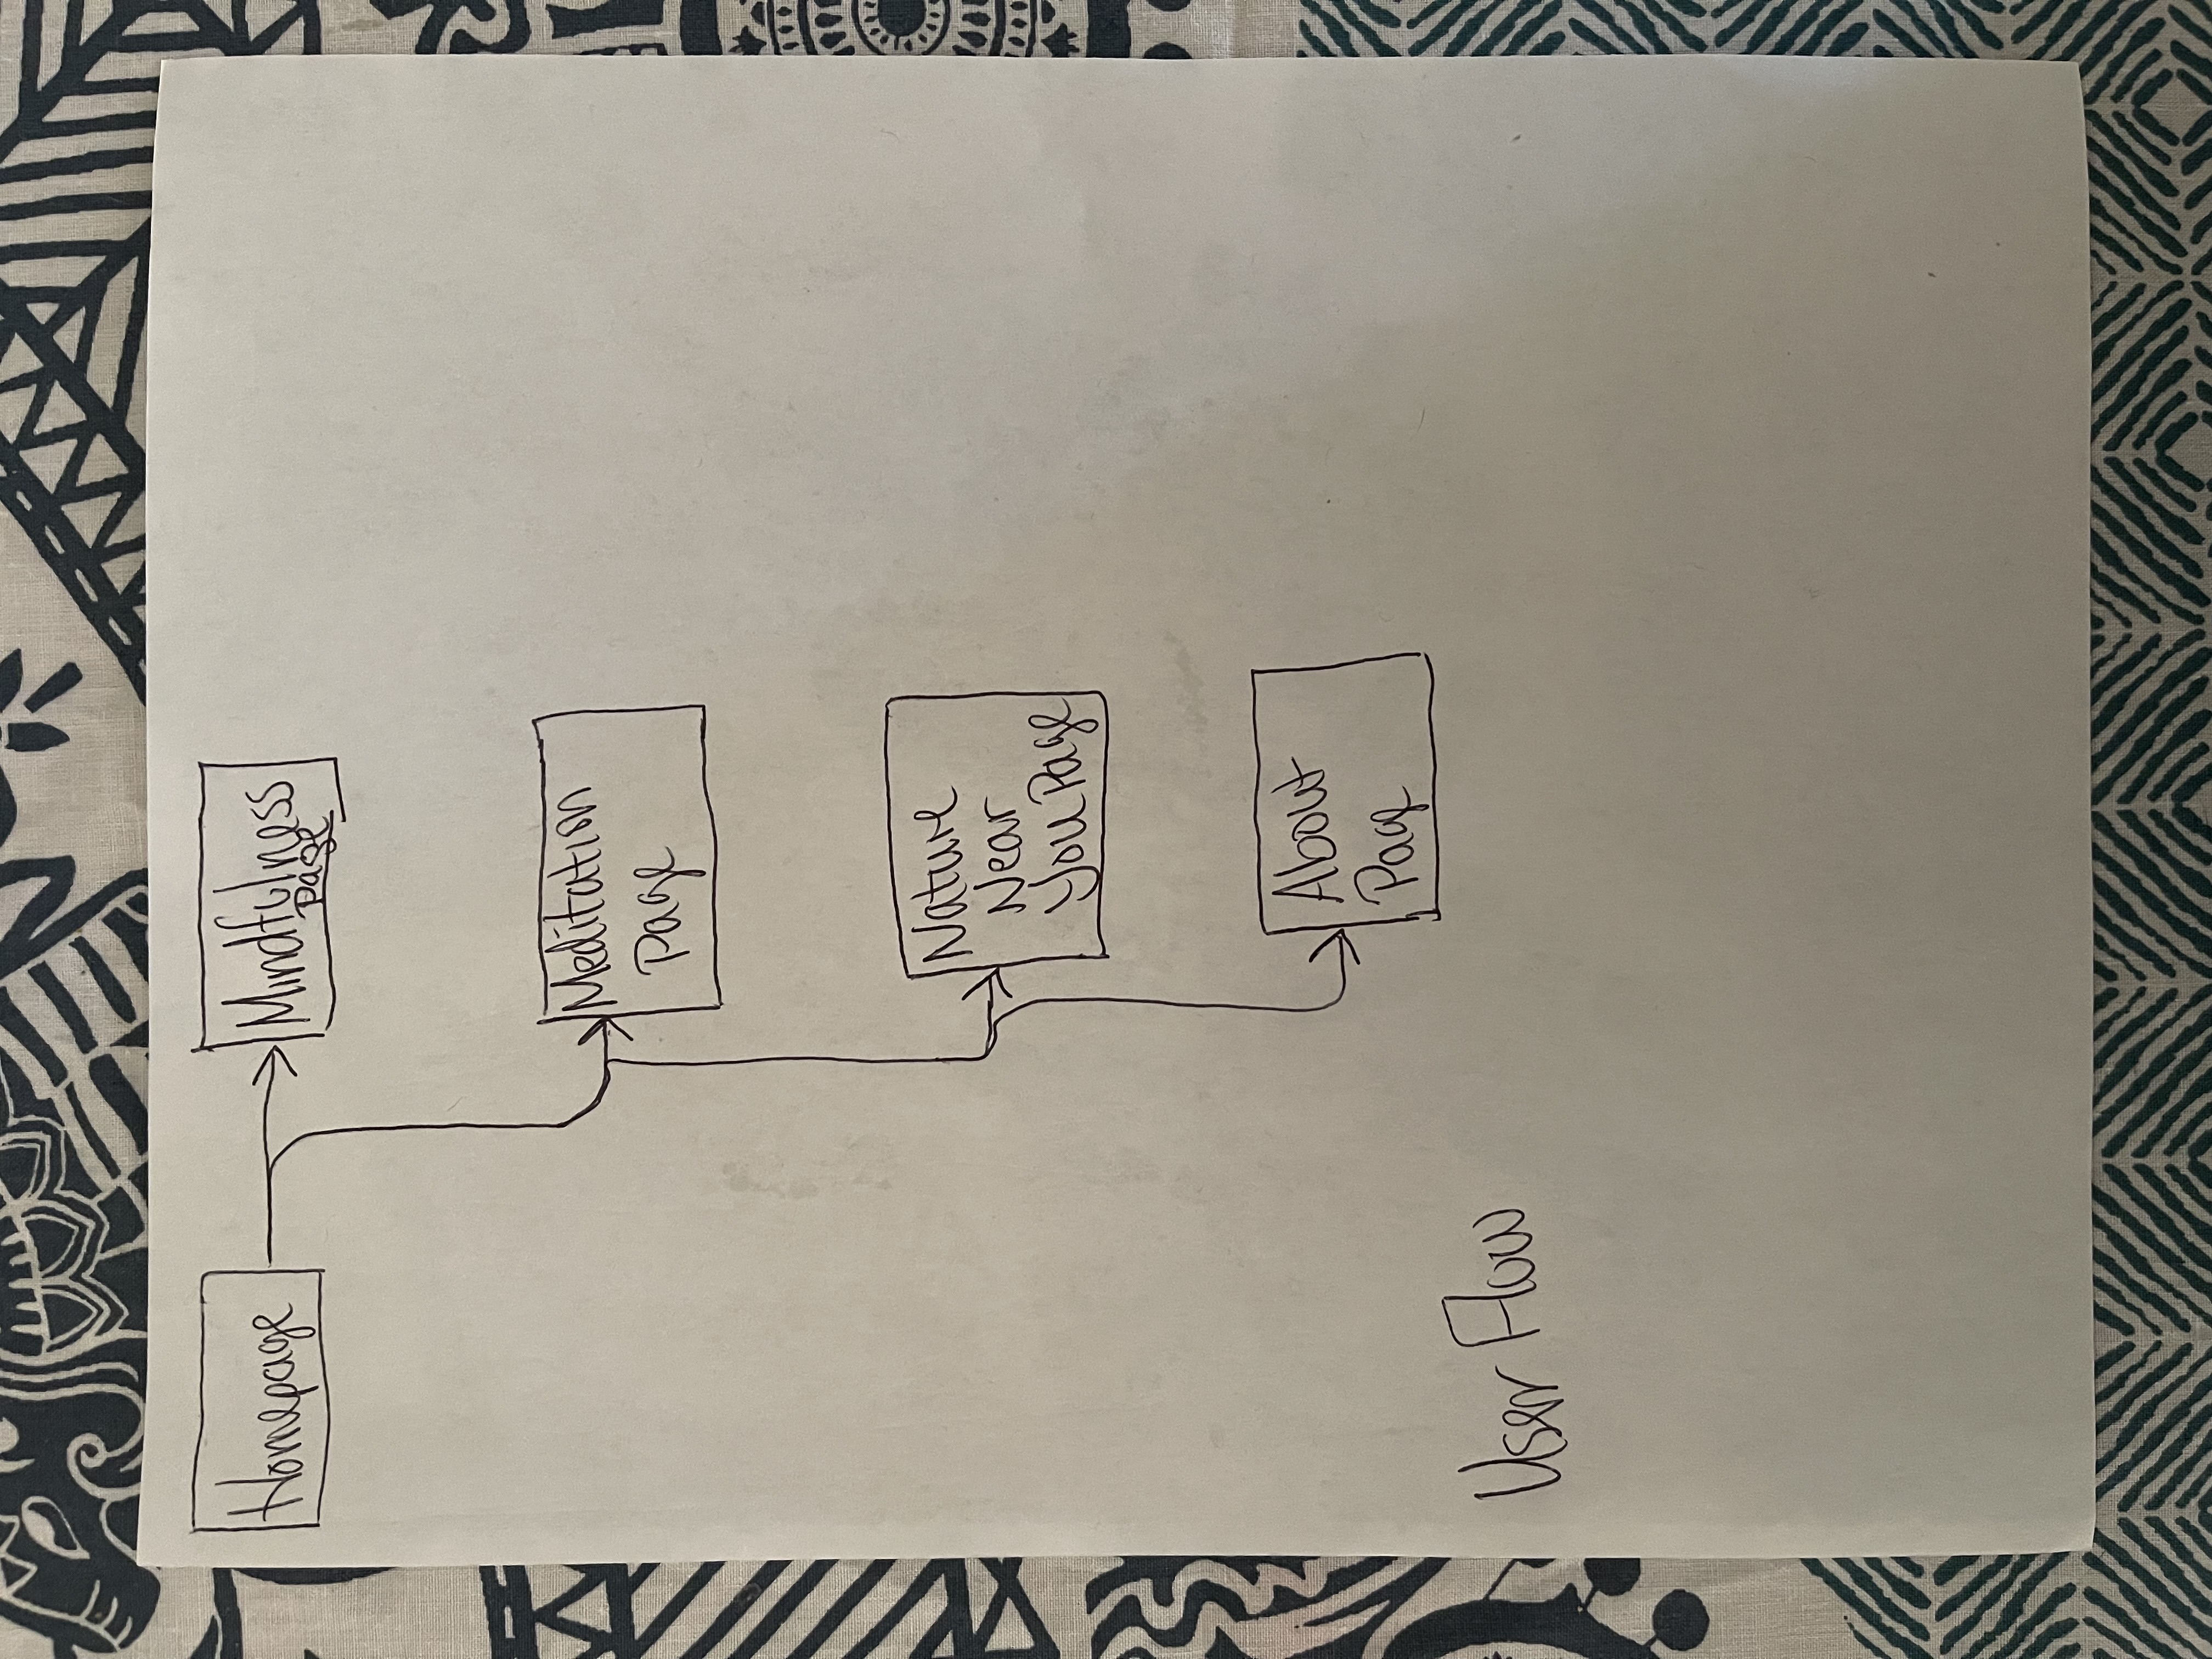 Homepage
Mindfulness
Page
Meditation
Page
Nature
Near
You Page
About
Page
User Flow